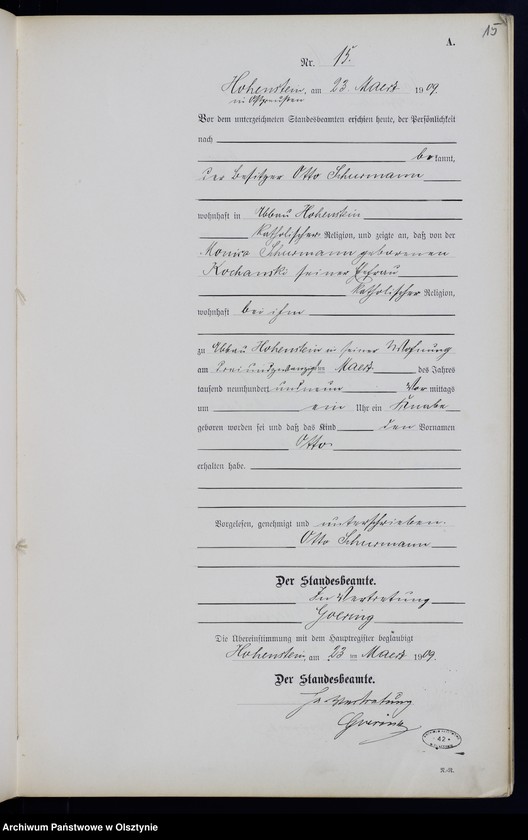 15
A.
Nr. 15.
Hohenstein, am 23 Maerz 1909.
in Ostpreussen
Vor dem unterzeichneten Standesbeamten erschien heute, der Persönlichkeit
nach
be kannt,
der Besitzer Otto Schurmann
wohnhaft in Abbau Hohenstein
katholischer Religion, und zeigte an, daß von der
Monica Schurmann geborenen
Kochanski seiner Ehefrau
katholischer Religion,
wohnhaft bei ihm
zu Abbau Hohenstein in seiner Wohnung
am dreiundzwanzigsten Maerz des Jahres
tausend neunhundert und neun Vor mittags
um ein Uhr ein Knabe
geboren worden sei und daß das Kind den Vornamen
Otto
erhalten habe.
Vorgelesen, genehmigt und unterschrieben.
Otto Schurmann
Der Standesbeamte.
In Vertretung
Goering
Die Übereinstimmung mit dem Hauptregister beglaubigt
Hohenstein, am 23 ten Maerz 1909.
Der Standesbeamte.
In Vertretung
Goering
42
N.-R.
Archiwum Państwowe w Olsztynie